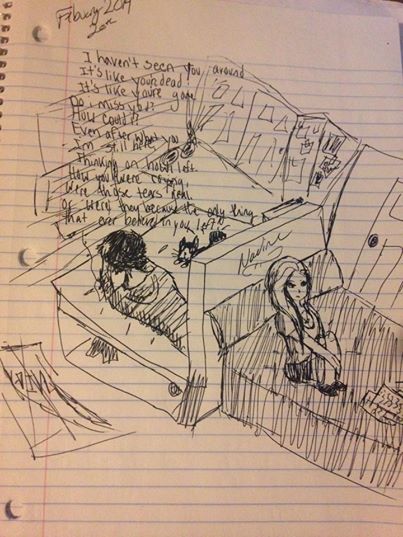 February 2014
I haven't seen you around
It's like your dead
It's like you're gone
Do i miss you?
How could I?
Even after what you
I'm still here
Thinking on how u left
How you were crying,
Were those tears real
Or were they because the only thing
that ever believed in you left?
Nadine